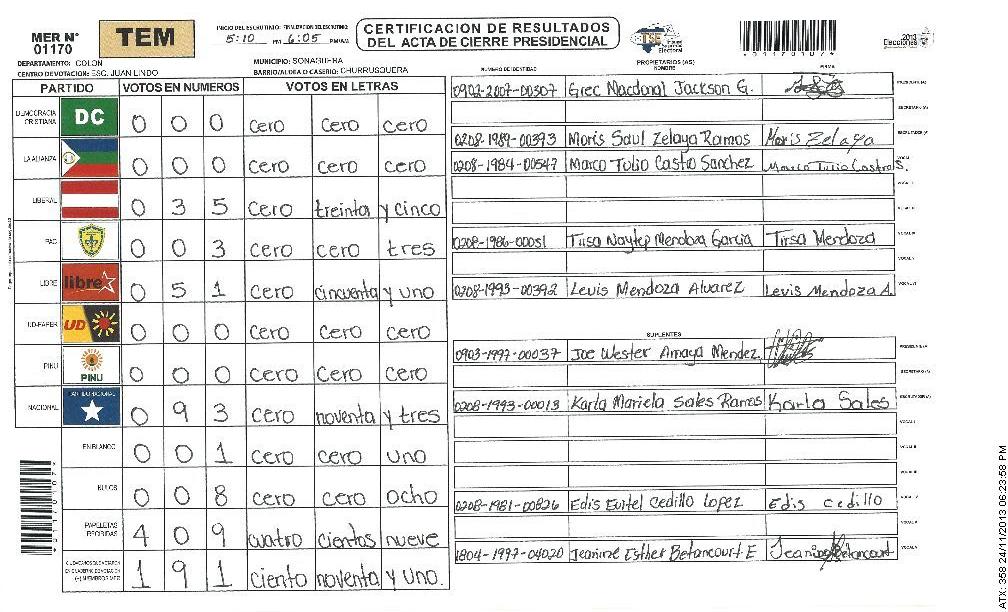 MER N° 01170
TEM
INICIO DEL ESCRUTINIO: FINALIZACION DEL ESCRUTINIO:
5:10 PM 6:05 PM/AM
CERTIFICACION DE RESULTADOS
DEL ACTA DE CIERRE PRESIDENCIAL
TSE Tribunal Supremo Electoral
*01170107*
2013 Elecciones
DEPARTAMENTO: COLON
MUNICIPIO: SONAGUERA
CENTRO DE VOTACION: ESC. JUAN LINDO
BARRIO/ALDEA O CASERIO: CHURRUSQUERA
NUMERO DE IDENTIDAD
PROPIETARIOS (AS)
NOMBRE
FIRMA
PARTIDO VOTOS EN NUMEROS VOTOS EN LETRAS
DEMOCRACIA CRISTIANA DC 0 0 0 cero cero cero
LA ALIANZA 0 0 0 cero cero cero
LIBERAL 0 3 5 cero treinta y cinco
PAC 0 0 3 cero cero tres
LIBRE libre 0 5 1 cero cincuenta y uno
UD-FAPER UD 0 0 0 cero cero cero
PINU PINU 0 0 0 cero cero cero
NACIONAL PARTIDO NACIONAL 0 9 3 cero noventa y tres
EN BLANCO 0 0 1 cero cero uno
NULOS 0 0 8 cero cero ocho
PAPELETAS RECIBIDAS 4 0 9 cuatro cientos nueve
CIUDADANOS QUE VOTARON EN CUADERNO DE VOTACION (+) MIEMBROS MER 1 9 1 ciento noventa y uno.
0902-2007-00307 Grec Nacdonal Jackson G. PRESIDENTE (A)
SECRETARIO (A)
0208-1989-00393 Moris Saul Zelaya Ramos Moris Zelaya ESCRUTADOR (A)
0208-1984-00547 Marco Tulio Castro Sanchez Marco Tulio Castro S. VOCAL I
0208-1986-00051 Tirsa Naytep Mendoza Garcia Tirsa Mendoza
0208-1993-00392 Levis Mendoza Alvarez Levis Mendoza A.
SUPLENTES
0903-1997-00037 Joe Wester Amaya Mendez PRESIDENTE (A)
SECRETARIO (A)
0208-1993-00013 Karla Mariela Sales Ramos Karla Sales ESCRUTADOR (A)
0208-1981-00826 Edis Euitel Cedillo Lopez Edis cedillo
1804-1997-04020 Jeanine Esther Betancourt E Jeanine Betancourt
ATX: 358 24/11/2013 06:23:58 PM